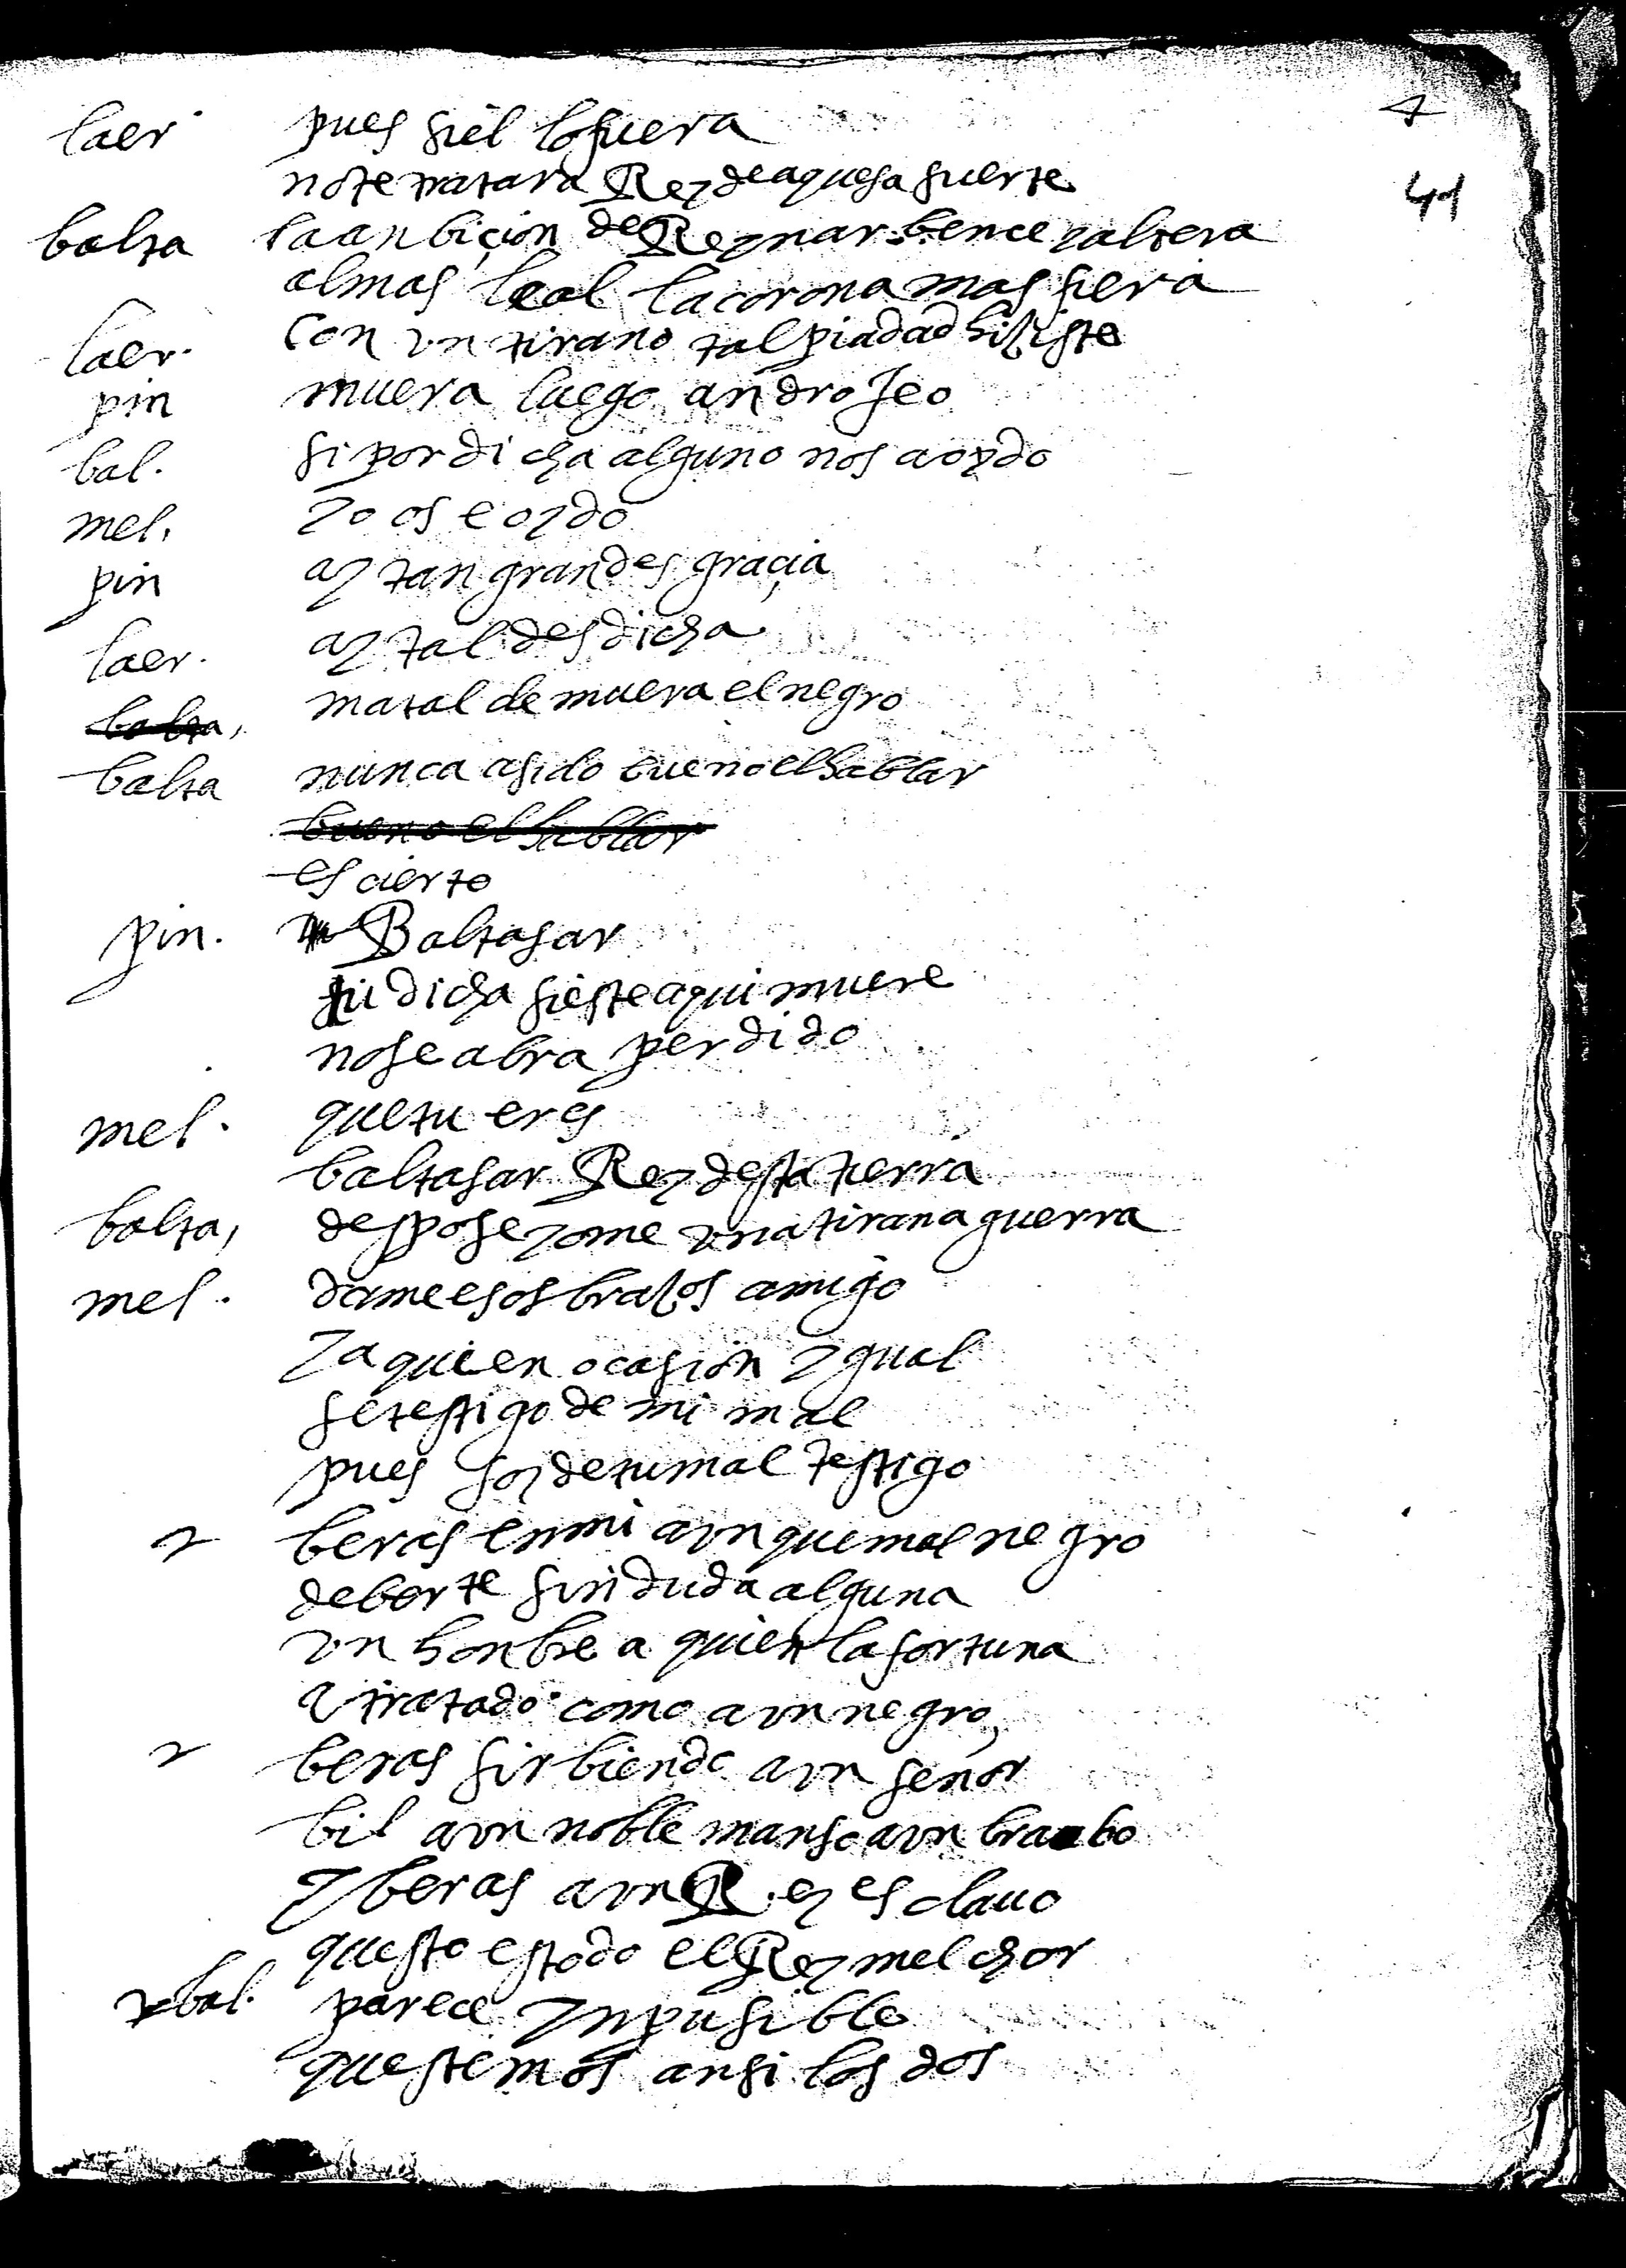 4
41
laer pues fiel lo fuera
no te tratara Rey de aquesa suerte
balta la anbiçion de Reynar bence y altera
almas leal la corona mas fiera
laer. Con vn tirano tal piadad hiziste
pin muera luego androfeo
bal. si por dicha alguno nos a oydo
mel. yo os e oydo
pin ay tan grande sgraçia
laer. ay tal desdicha
balta, matalde muera el negro
balta nunca a sido bueno el hablar
bueno el hablar
es cierto
pin. Baltasar
tu dicha si este aqui muere
no se abra perdido
mel. que tu eres
baltasar Rey desta tierra
balta, desposeyome vna tirana guerra
mel. dame esos brazos amigo
y a qui en ocasion ygual
se testigo de mi mal
pues soy de tu mal testigo
beras en mi avnque mal negro
deberte sin duda alguna
vn honbre a quien la fortuna
a tratado como a vn negro,
beras sirbiendo a vn señor
bil a vn noble manso a vn brabo
y beras a vn Rey esclauo
questo es todo el Rey melchor
bal. parece ynpusible
questemos ansi los dos